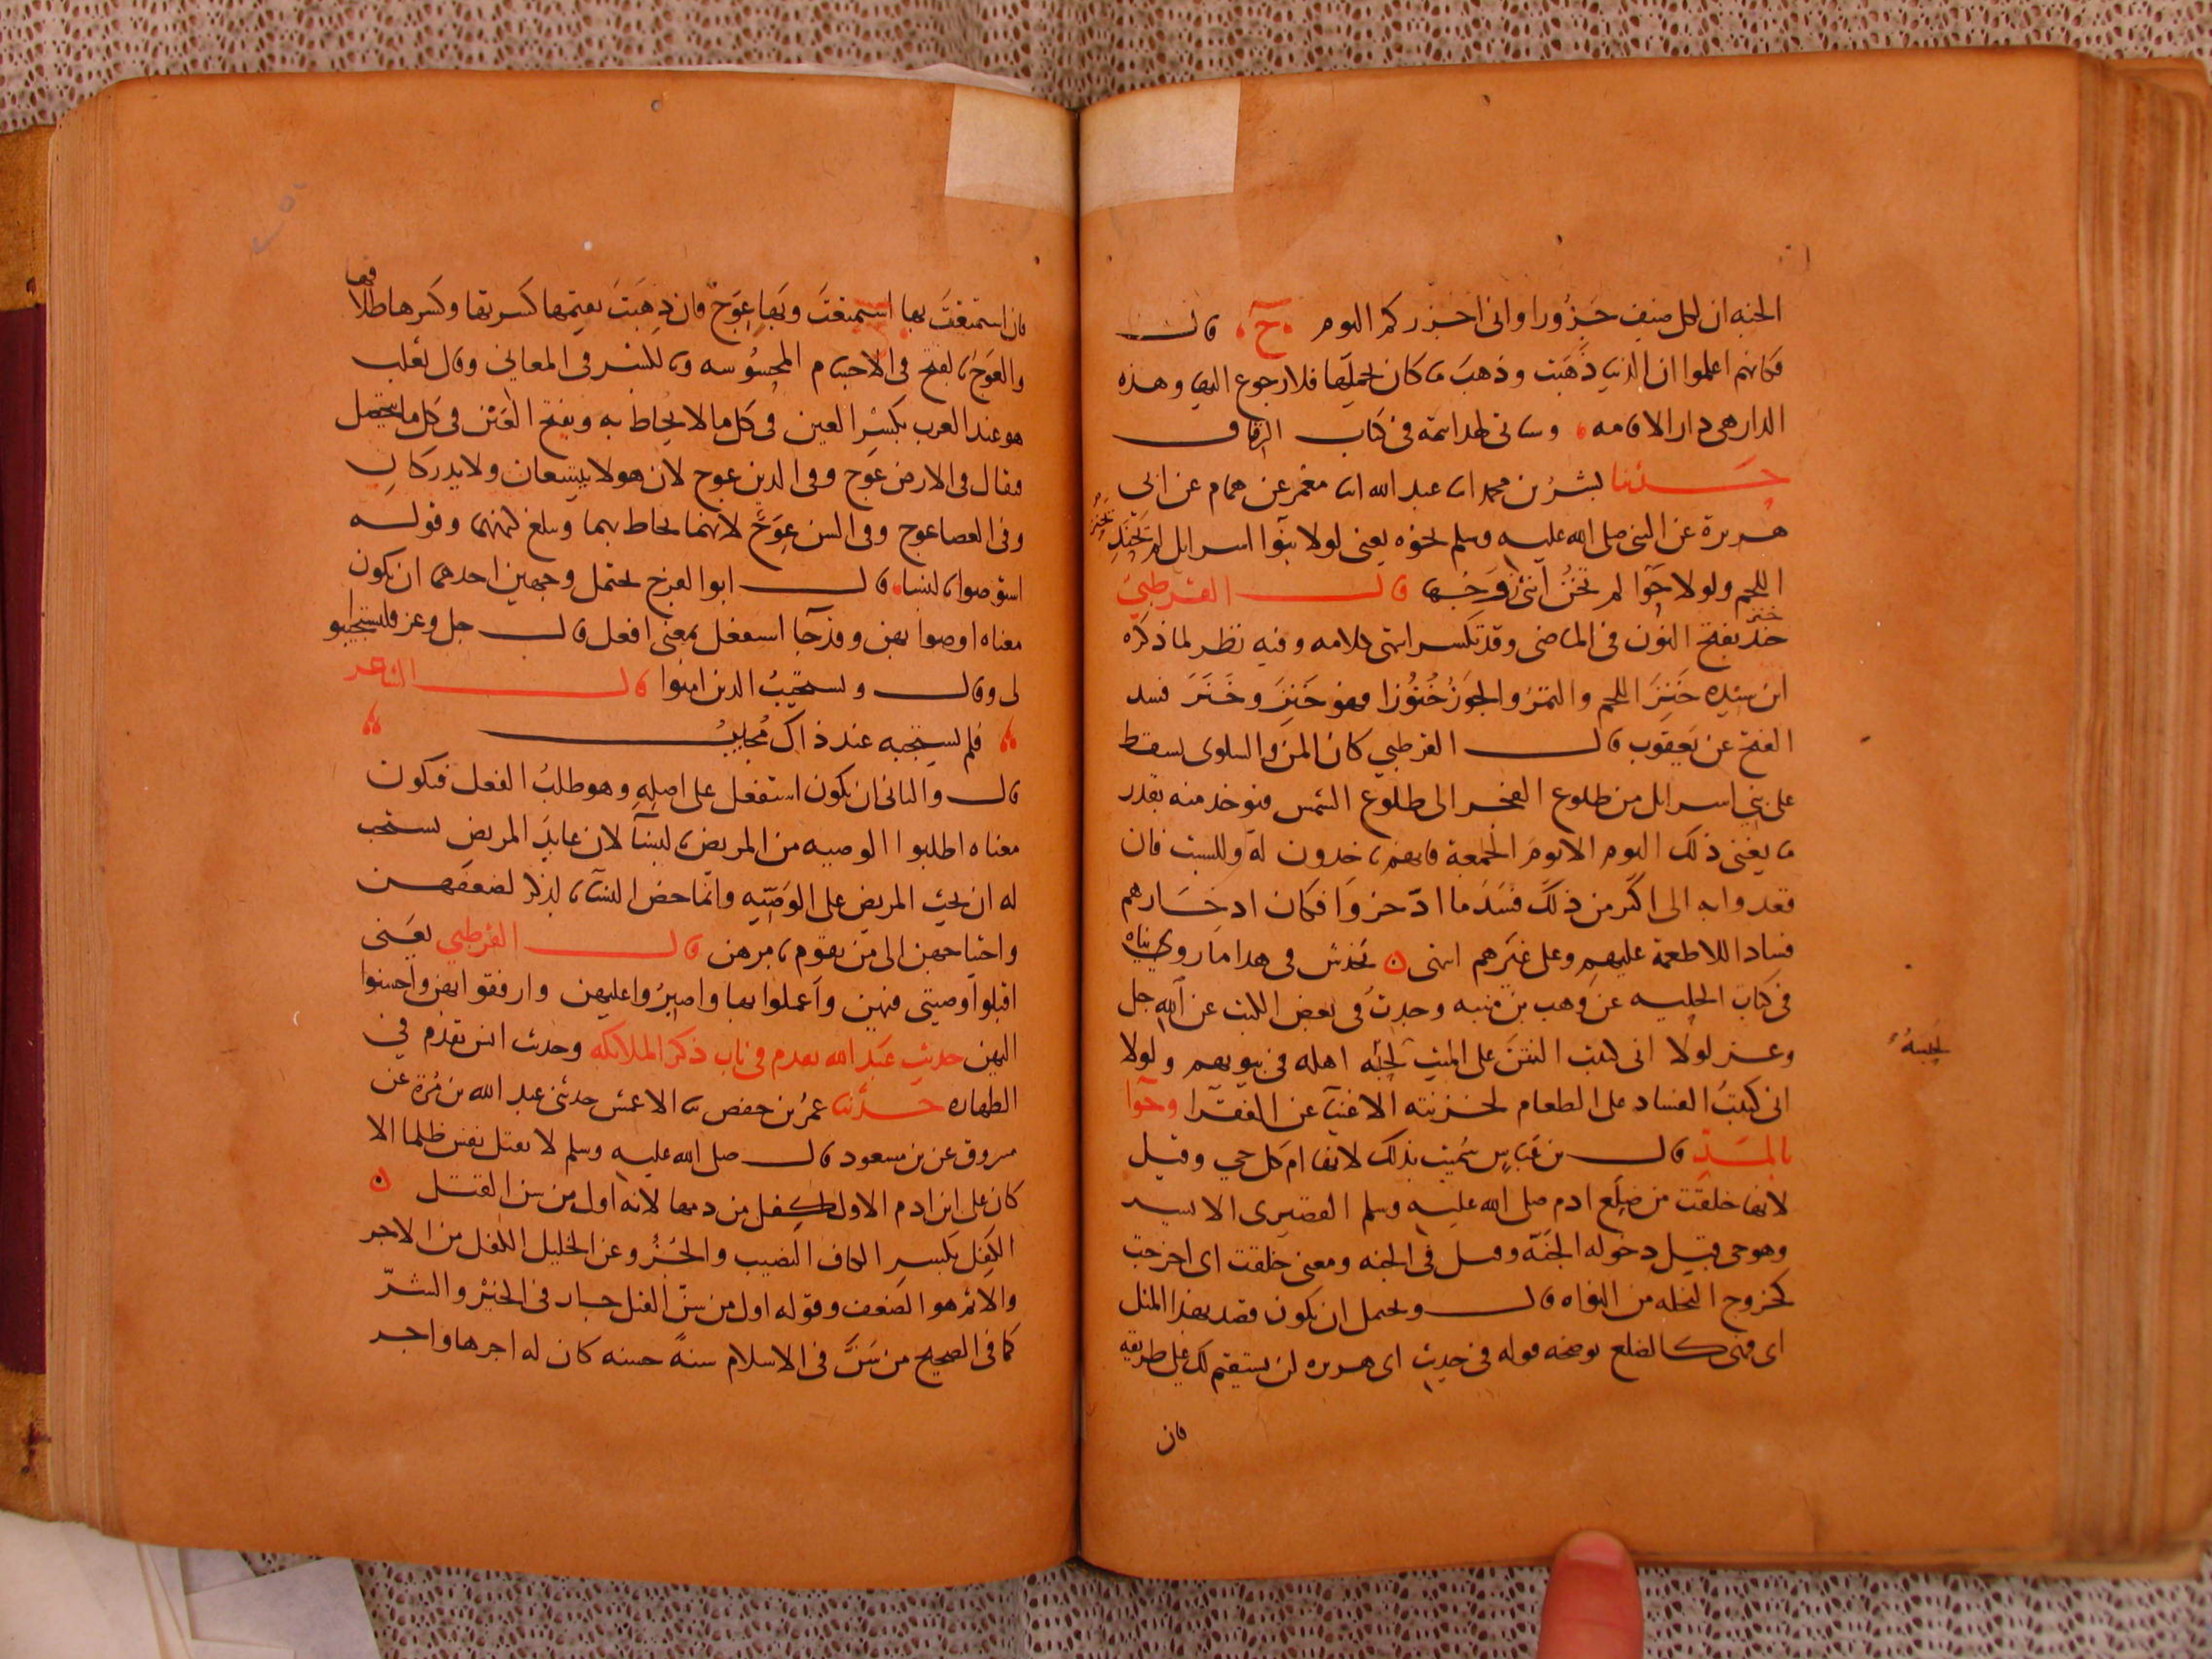 الجنه ان لكل ضيف جَزُورا وانى اجزركم اليوم ح قال
فكانهم اعلموا ان الدنيا ذَهَبَت وذهبَ ما كان لحمليها فلا رجوع اليها وهذه
الدار هى دار الاقامه وسياتى لهذا تتمة فى كتاب الرقاق
حدثنا بشرُ بن محمد انا عبد الله انا معمر عن همام عن ابي
هريرة عن النبى صلى الله عليه وسلم نحوه يعنى لولا بنوا اسرايل لم يخنز
اللحم ولولا حوّا لم تخُن انثى زوجها قال القرطبيّ
خنز بفتح النون فى الماضى وقد تكسر انتهى كلامه وفيه نظر لما ذكره
ابن سيده خَنِزَ اللحم والتمرُ والجوزُ خُنُوزا فهو خَنِزَ وخَنَزَ فسد
الفتح عن يعقوب قال القرطبي كان المن والسلوى يسقط
على بني اسرايل من طلوع الفجر الى طلوع الشمس فيوخذ منه بقدر
ما يغنى ذلك اليوم الا يومَ الجمعة فانهم ياخذون له وللسبت فان
تعدوا به الى اكثر من ذلك فسَدَ ما ادّخروا فكان ادخارهم
فسادا للاطعمة عليهم وعلى غيرهم انتهى يخدش فى هذا ما رويناه
فى كتاب الحليه عن وهب بن منبه وجدتُ فى بعض الكتب عن الله جل
وعز لولا انى كتبت النتنَ على الميت لحبسه اهله فى بيوتهم ولولا
لحبسهُ
انى كتبتُ الفساد على الطعام لخزنته الاغنيا عن الفقرا وحوآ
بالمَدّ قال بن عباس سُميت بذلك لانها ام كل حي وقيل
لانها خلقت من ضِلَع ادم صلى الله عليه وسلم القصيرى الايسر
وهو حى قبل دخوله الجَنّة وقيل فى الجنه ومعنى خلقت اى اخرجت
كخروج النخله من النواه قال ويحتمل ان يكون قصد بهذا المثل
اى فهى كالضلع يوضحه قوله فى حديث ابى هريره لن يستقيم لك على طريقه
فان
فان استمتعتَ بها استمتعتَ وبَها عِوَجٌ فان ذهَبتَ تقيمها كسرتها وكسرها طلاقها
والعوَج بالفتح فى الاجسام المحسُوسه وبالكسر فى المعاني وقال ثعلب
هو عند العرب بكسْرِ العين فى كل ما لا يحاط به وبفتح العَيْن فى كل ما يتحصل
فيقال فى الارض عِوَج وفى الدين عِوج لان هولا يتسعان ولا يدركان
وفى العصا عوج وفى السن عِوَجٌ لانهما يحاط بهما ويبلغ كنههما وقوله
استوصوا بالنسا قال ابو الفرج يحتمل وجهين احدهما ان يكون
معناه اوصوا بهن وقد جآ استفعل بمعنى افعل قال جل وعز فليستجيبو
لى وقال ويستجيبُ الذين امنوا قال الشاعر
فلم يستجبه عند ذاك مُجيبُ
قال والثانى ان يكون استفعل على اصلِهِ وهو طلبُ الفعل فيكون
معناه اطلبوا الوصيه من المريض بالنسآ لان عايدَ المريضِ يستحب
له ان يحث المريض على الوَصِيّه وانّما خص النسآ بالذكر لضعفهن
واحتياجهن الى مَن يقوم بامرهن قال القرطبي يعَنى
اقبلوا وصيتى فيهن وآعملوا بها واصبرُوا عليهن وارفقوا بهن واحسنوا
اليهن حديث عبد الله تقدم فى باب ذكر الملايكه وحديث انس تقدم في
الطهاره حدثنا عمرُ بن حفص نا الاعمش حدثنى عبد الله بن مُرّة عن
مسروق عن بن مسعود قال صلى الله عليه وسلم لا تقتل نفس ظلما الا
كان على ابن ادم الاول كفل من دمها لانه اول من سن القتل ۞
الكِفل بكسرِ الكاف النصيب والجُزُ وعن الخليل الكفل من الاجر
والاثم هو الضعف وقوله اول من سَنّ القتل جار فى الخيْر والشرّ
كما فى الصحيح من سَنَّ فى الاسلام سنةً حسنه كان له اجرها واجر